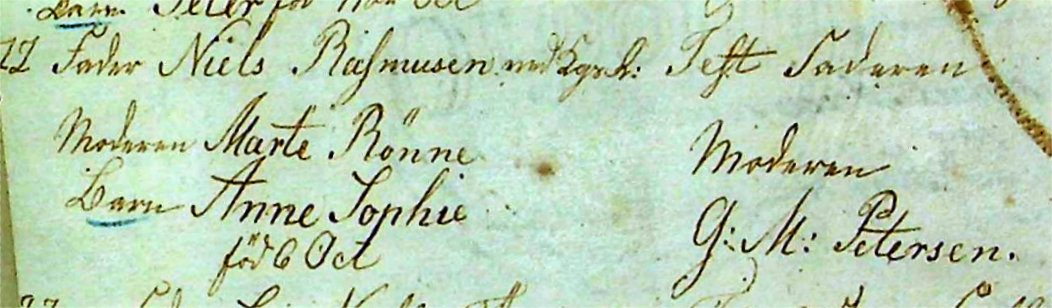 Barn Peter
22 Fader Niels Rasmusen Test Faderen
Moderen Marte Rönne Moderen
Barn Anne Sophie G: M: Petersen.
föd 6 Oct